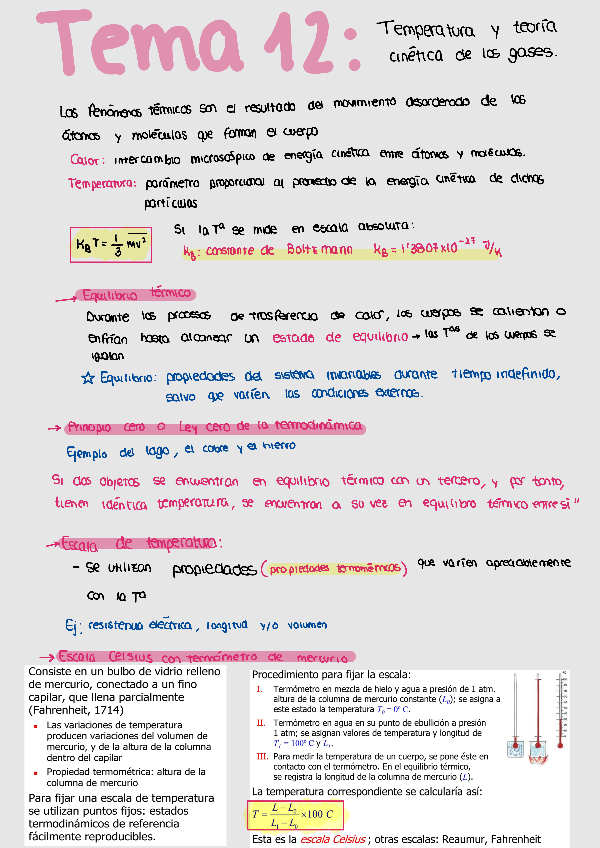 Tema 12: Temperatura y teoría
cinética de los gases.
Los fenómenos térmicos son el resultado del movimiento desordenado de los
átomos y moléculas que forman el cuerpo
Calor: intercambio microscópico de energía cinética entre átomos y moléculas.
Temperatura: parámetro proporcional al promedio de la energía cinética de dichas
partículas
Si la Tª se mide en escala absoluta:
K_B T = 1/3 \overline{mv²}
K_B: constante de Boltzmann K_B = 1'3807x10⁻²³ J/K
→ Equilibrio térmico
Durante los procesos de trasferencia de calor, los cuerpos se calientan o
enfrían hasta alcanzar un estado de equilibrio → las Tªs de los cuerpos se
igualan
☆ Equilibrio: propiedades del sistema invariables durante tiempo indefinido,
salvo que varíen las condiciones externas.
→ Principio cero o Ley cero de la termodinámica
Ejemplo del lago, el cobre y el hierro
Si dos objetos se encuentran en equilibrio térmico con un tercero, y por tanto,
tienen idéntica temperatura, se encuentran a su vez en equilibrio térmico entre sí"
→ Escala de temperatura:
- Se utilizan propiedades (propiedades termométricas) que varíen apreciablemente
con la Tª
Ej: resistencia eléctrica, longitud y/o volumen
→ Escala Celsius con termómetro de mercurio
Consiste en un bulbo de vidrio relleno
de mercurio, conectado a un fino
capilar, que llena parcialmente
(Fahrenheit, 1714)
▪ Las variaciones de temperatura
producen variaciones del volumen de
mercurio, y de la altura de la columna
dentro del capilar
▪ Propiedad termométrica: altura de la
columna de mercurio
Para fijar una escala de temperatura
se utilizan puntos fijos: estados
termodinámicos de referencia
fácilmente reproducibles.
Procedimiento para fijar la escala:
I. Termómetro en mezcla de hielo y agua a presión de 1 atm.
altura de la columna de mercurio constante (L₀); se asigna a
este estado la temperatura T₀ = 0º C.
II. Termómetro en agua en su punto de ebullición a presión
1 atm; se asignan valores de temperatura y longitud de
T₁ = 100º C y L₁.
III. Para medir la temperatura de un cuerpo, se pone éste en
contacto con el termómetro. En el equilibrio térmico,
se registra la longitud de la columna de mercurio (L).
La temperatura correspondiente se calcularía así:
T = (L − L₀)/(L₁ − L₀) × 100 C
Esta es la escala Celsius; otras escalas: Reaumur, Fahrenheit